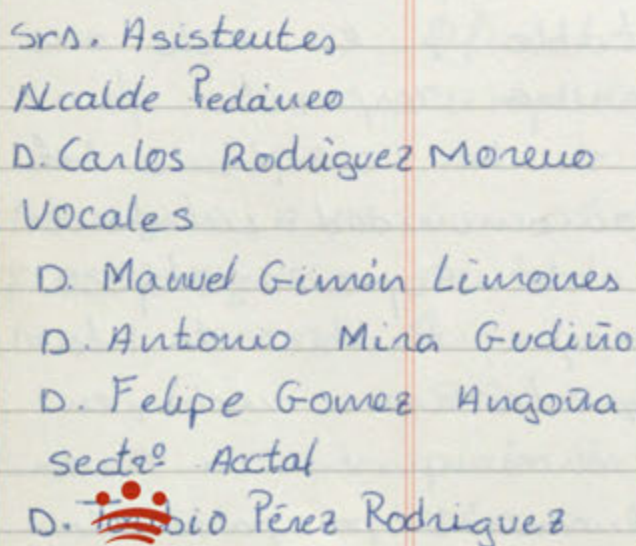 Srs. Asistentes
Alcalde Pedáneo
D. Carlos Rodríguez Moreno
Vocales
D. Manuel Gimón Limones
D. Antonio Mira Gudiño
D. Felipe Gomez Angoña
Sectrº Acctal
D. Pérez Rodriguez